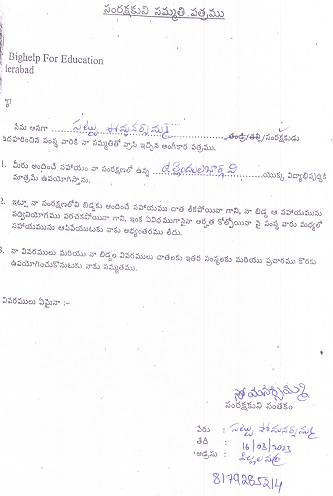 సంరక్షకుని సమ్మతి పత్రము
Bighelp For Education
lerabad
నేను అనగా ... సట్టు సోమనర్సమ్మ ... తండ్రి/తల్లి/సంరక్షకుడు
ఉదహరించిన సంస్థ వారికి నా సమ్మతితో వ్రాసి ఇచ్చిన అంగీకార పత్రము.
1. మీరు అందించే సహాయం నా సంరక్షణలో ఉన్న ... యొక్క విద్యాభివృద్ధికి
మాత్రమే ఉపయోగిస్తాను.
2. ఇట్లూ నా సంరక్షణలోని బిడ్డకు అందించే సహాయము దాత లేకపోయినా గాని, నా బిడ్డ ఆ సహాయమును
సద్వినియోగము పరచకపోయినా గాని, ఇంక ఏవిధముగానైనా అర్హత కోల్పోయినా పై సంస్థ వారు మధ్యలో
సహాయమును ఆపివేయుటకు నాకు అభ్యంతరము లేదు.
3. నా వివరములు మరియు నా బిడ్డల వివరములు దాతలకు ఇతర సంస్థలకు మరియు ప్రచారము కొరకు
ఉపయోగించుకొనుటకు నాకు సమ్మతము.
వివరములు ఏమైనా :-
సోమనర్సమ్మ
సంరక్షకుని సంతకం
పేరు : సట్టు సోమనర్సమ్మ
తేదీ : 16/03/2023
అడ్రసు : పిల్లలమర్రి
8179285214